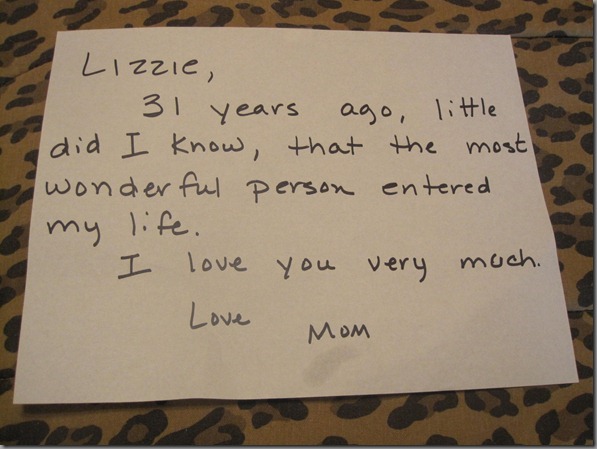 Lizzie,
31 years ago, little
did I know, that the most
wonderful person entered
my life.
I love you very much.
Love
Mom